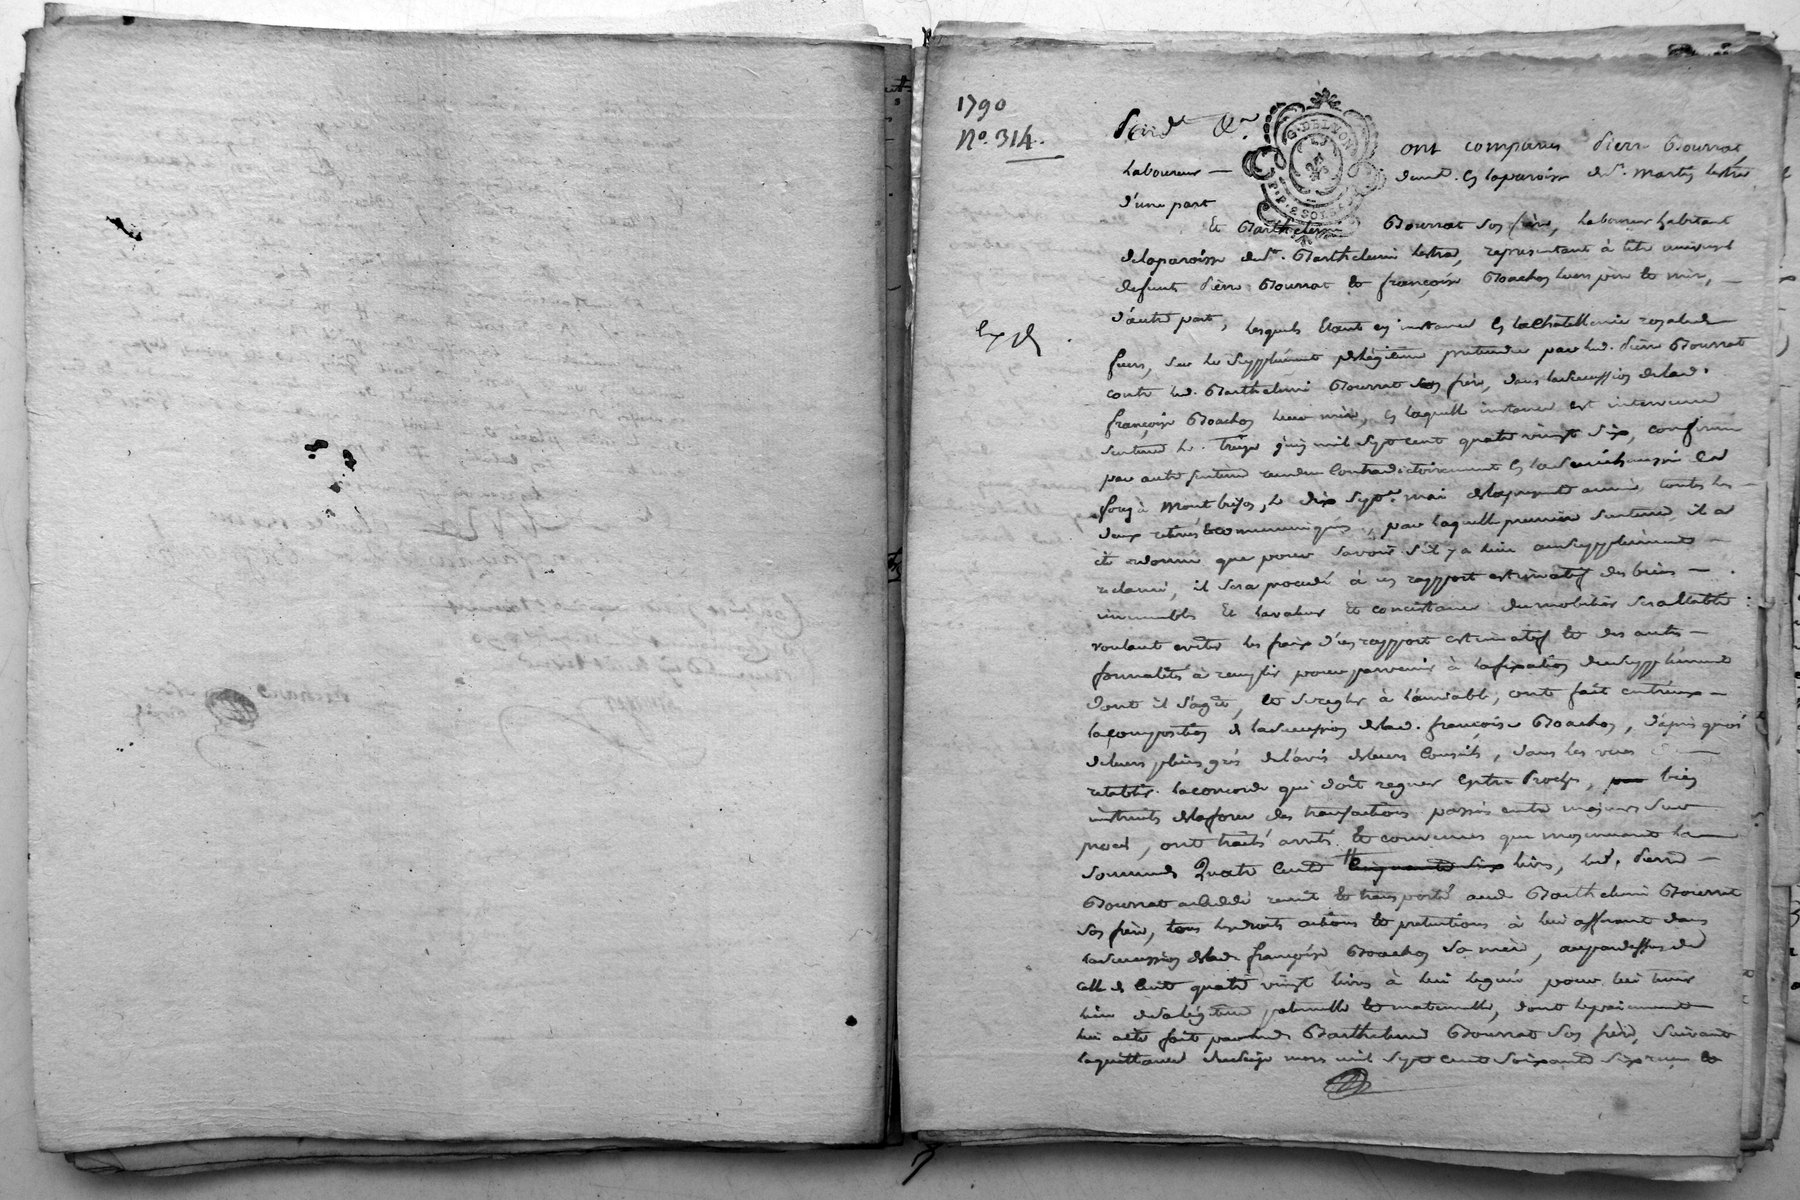 1790
N° 314.
G. DELYON
P.P. 2 SOLS
ont comparus Pierre Bourrat
laboureur — demt. en la paroisse de St. Martin lestra
d'une part
Et Barthelemi Bourrat son frère, laboureur habitant
de la paroisse de St. Barthelemi lestra, representant à titre universel
defunts Pierre Bourrat et françoise Boachon leurs père et mère, —
d'autre part, lesquels étant en instance en la Chatellenie royale de
Exp d
feurs, sur le supplément de légitime pretendu par led. Pierre Bourrat
contre led. Barthelemi Bourrat son frère, dans la succession de lad.
françoise Boachon leur mère, en laquelle instance est intervenue
sentence le treize juin mil sept cent quatre vingt six, confirmée
par autre sentence rendue contradictoirement en la Senéchaussée de
forez à Montbrison, le dix sept mai de la presente année toutes les —
deux retirées et communiquées, par laquelle première sentence, il a
été ordonné que pour savoir s'il y a lieu au supplément —
reclamé, il sera procedé à un rapport estimatif des biens —
immeubles Et la valeur et consistance du mobilier
voulant eviter les fraix d'un rapport estimatif et des autres —
formalités à remplir pour parvenir à la fixation du supplément
dont il s'agit, et se regler à l'amiable, ont fait entr'eux —
la composition de la succession de lad. françoise Boachon, d'après quoi
de leurs pleins grés de l'avis de leurs Conseils, dans les vues de
retablir la concorde qui doit regner entre Proches, bien
instruits de la force des transactions passées entre majeurs sur
procès, ont traité arreté et convenus que moyennant la
somme de Quatre Cents cinquante six livres, led. Pierre —
Bourrat a cédé remit et transporté aud. Barthelemi Bourrat
son frère, tous les droits actions et pretentions à lui afferant dans
la succession de lad. françoise Boachon sa mère, au par dessus de
celle de Cent quatre vingt livres à lui leguée pour lui tenir
lieu de sa légitime paternelle et maternelle, dont le paiement
lui a été fait par led. Barthelemi Bourrat son frère, suivant
la quittance du seize mars mil sept cent soixante seize reçue